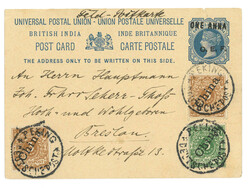 Feld-Postkarte
UNIVERSAL POSTAL UNION - UNION POSTALE UNIVERSELLE
BRITISH INDIA INDE BRITANNIQUE
POST CARD CARTE POSTALE
THE ADDRESS ONLY TO BE WRITTEN ON THIS SIDE.
ONE ANNA
An Herrn Hauptmann
Arthur
Hoch- und Wohlgeboren
Breslau
Moltkestraße 13
PEKING
PEKING
PEKING